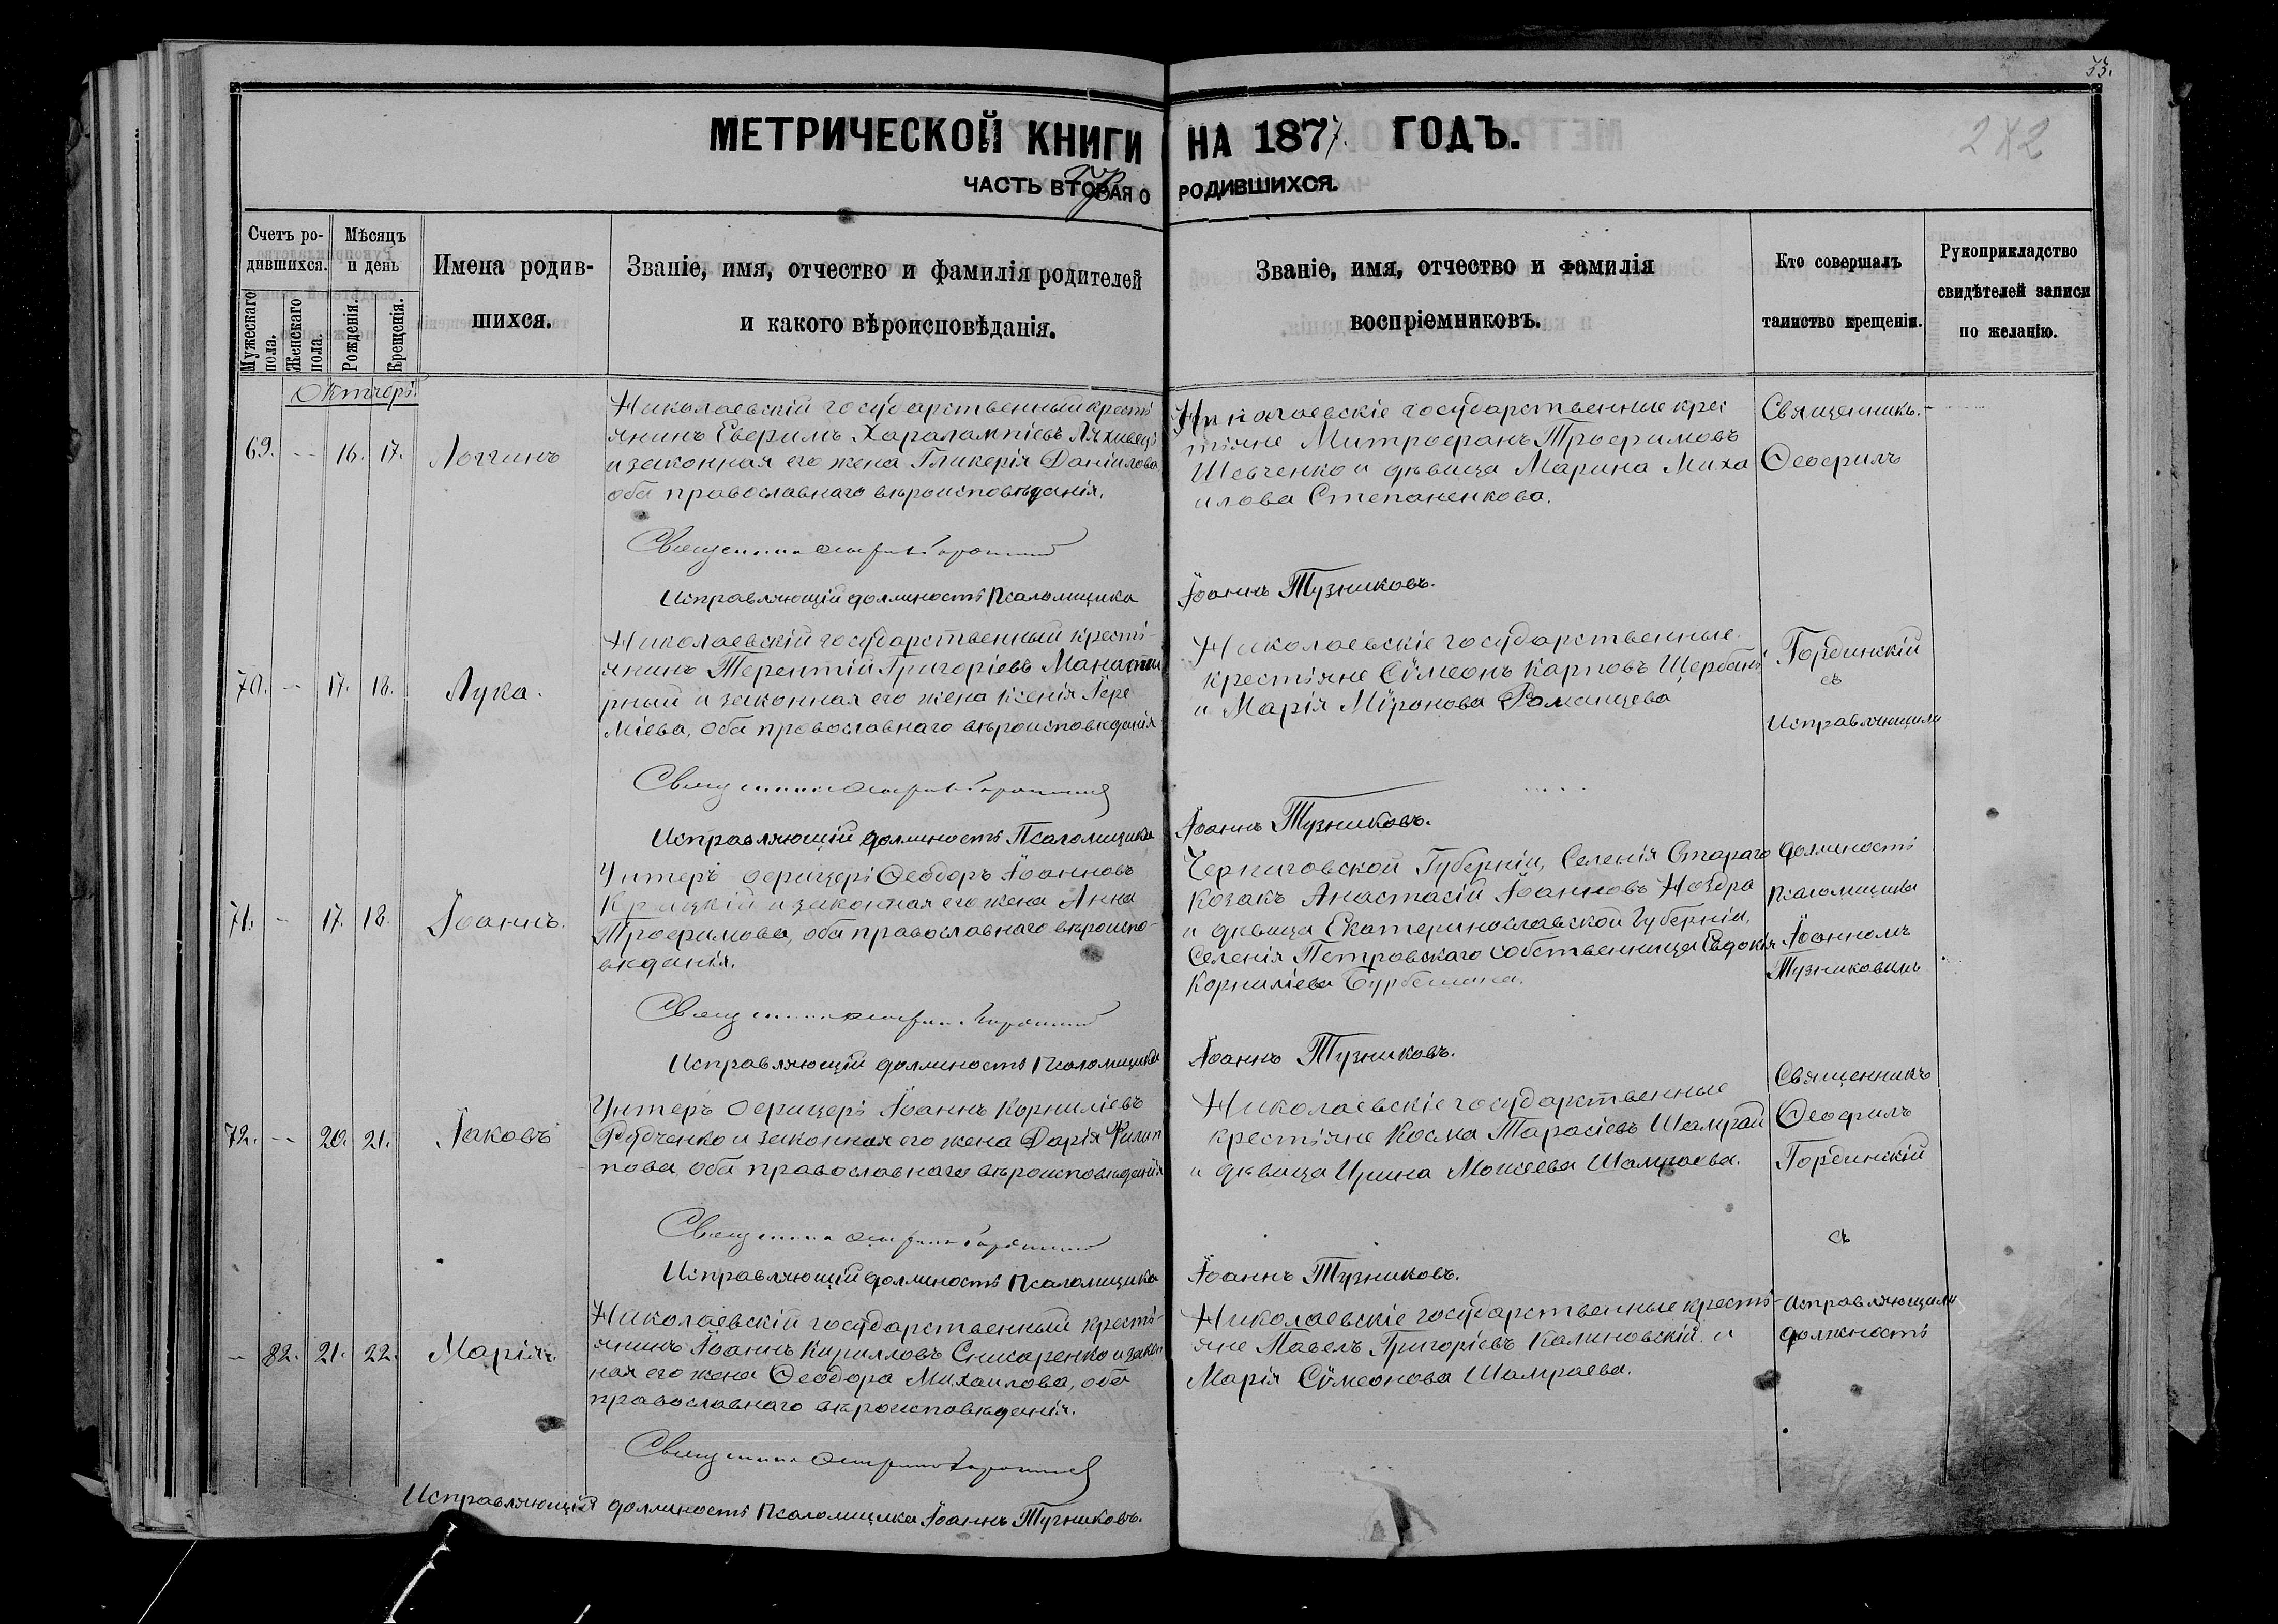 33.
МЕТРИЧЕСКОЙ КНИГИ НА 1877. ГОДЪ.
242
ЧАСТЬ ВТОРАЯ О РОДИВШИХСЯ.
Счетъ родившихся.
Мужескаго пола.
Женскаго пола.
Мѣсяцъ и день
Рожденія.
Крещенія.
Имена родившихся.
Званіе, имя, отчество и фамилія родителей
и какого вѣроисповѣданія.
Званіе, имя, отчество и фамилія
воспріемниковъ.
Кто совершалъ
таинство крещенія.
Рукоприкладство
свидѣтелей записи
по желанію.
69. - 16. 17. Логгинъ
Николаевскій государственный кресть
янинъ Евфимъ Харалампіевъ
и законная его жена Гликерія Даніилова
оба православнаго вѣроисповѣданія.
Николаевскіе государственные крес
тьяне Митрофанъ Трофимовъ
Шевченко и дѣвица Марина Миха
илова Степаненкова.
Священникъ
Ѳеофилъ
Исправляющій должность Псаломщика
Іоаннъ Тузниковъ.
70. - 17. 18. Лука.
Николаевскій государственный кресть-
янинъ Терентій Григоріевъ Манасты
рный и законная его жена Ксенія Іере
міева, оба православнаго вѣроисповѣданія
Николаевскіе государственные
крестьяне Сѵмеонъ Карповъ Щербань
и Марія Мѵронова Романцева
Гординскій
съ
Исправляющимъ
Исправляющій должность Псаломщика
Іоаннъ Тузниковъ.
71. - 17. 18. Іоаннъ.
Унтеръ офицеръ Ѳеодоръ Іоанновъ
и законная его жена Анна
Трофимова, оба православнаго вѣроиспо-
вѣданія.
Черниговской Губерніи, Селенія Стараго
Козакъ Анастасій Іоанновъ Ноздра
и дѣвица Екатеринославской Губерніи,
Селенія Петровскаго собственница Евдокія
Корниліева
должность
Псаломщика
Іоанномъ
Тузниковымъ
Исправляющій должность Псаломщика
Іоаннъ Тузниковъ.
72. - 20. 21. Іаковъ
Унтеръ офицеръ Іоаннъ Корниліевъ
Рудченко и законная его жена Дарія Филип
пова оба православнаго вѣроисповѣданія
Николаевскіе государственные
крестьяне Косма Тарасіевъ Шамрай
и дѣвица Ирина Моисеева Шамраева.
Священникъ
Ѳеофилъ
Гординскій
съ
Исправляющій должность Псаломщика
Іоаннъ Тузниковъ.
- 82. 21. 22. Марія.
Николаевскій государственный кресть-
янинъ Іоаннъ Кирилловъ Снисаренко и закон
ная его жена Ѳеодора Михаилова, оба
православнаго вѣроисповѣданія.
Николаевскіе государственные кресть-
яне Павелъ Григоріевъ Калиновскій и
Марія Сѵмеонова Шамраева.
Исправляющимъ
должность
Исправляющій должность Псаломщика Іоаннъ Тузниковъ.